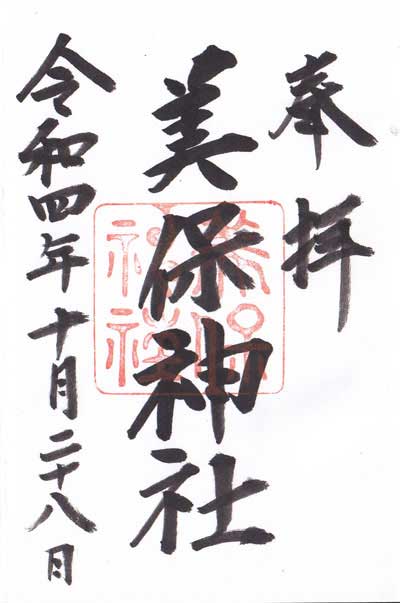 奉拝
美保神社
令和四年十月二十八日